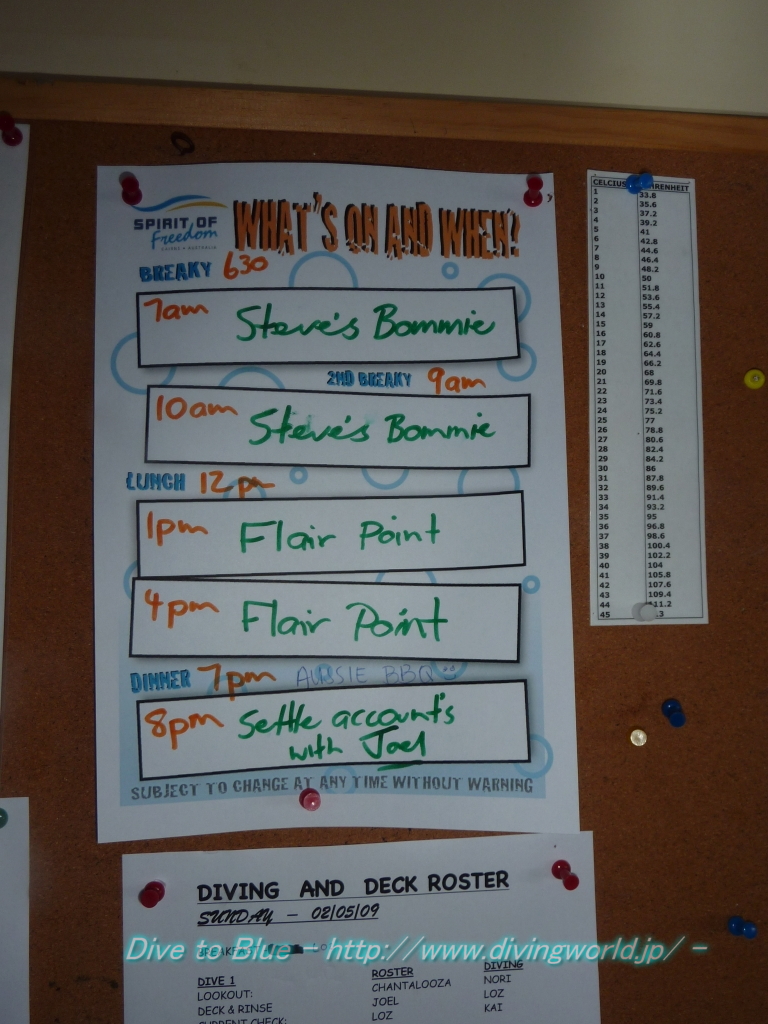 SPIRIT OF
Freedom
CAIRNS • AUSTRALIA
WHAT'S ON AND WHEN?
BREAKY 630
7am Steve's Bommie
2ND BREAKY 9am
10am Steve's Bommie
LUNCH 12pm
1pm Flair Point
4pm Flair Point
DINNER 7pm AUSSIE BBQ
8pm Settle accounts
with Joel
SUBJECT TO CHANGE AT ANY TIME WITHOUT WARNING
CELCIUS HRENHEIT
1 33.8
2 35.6
3 37.2
4 39.2
5 41
6 42.8
7 44.6
8 46.4
9 48.2
10 50
11 51.8
12 53.6
13 55.4
14 57.2
15 59
16 60.8
17 62.6
18 64.4
19 66.2
20 68
21 69.8
22 71.6
23 73.4
24 75.2
25 77
26 78.8
27 80.6
28 82.4
29 84.2
30 86
31 87.8
32 89.6
33 91.4
34 93.2
35 95
36 96.8
37 98.6
38 100.4
39 102.2
40 104
41 105.8
42 107.6
43 109.4
44 11.2
45 .3
DIVING AND DECK ROSTER
SUNDAY – 02/05/09
BREAKFAST
Dive to Blue - http://www.divingworld.jp/ -
DIVE 1 ROSTER DIVING
LOOKOUT: CHANTALOOZA NORI
DECK & RINSE JOEL LOZ
CURRENT CHECK: LOZ KAI